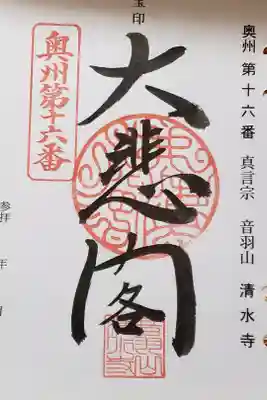 奥州第十六番 真言宗 音羽山 清水寺
宝印
大悲閣
奥州第十六番
参拝 年 月